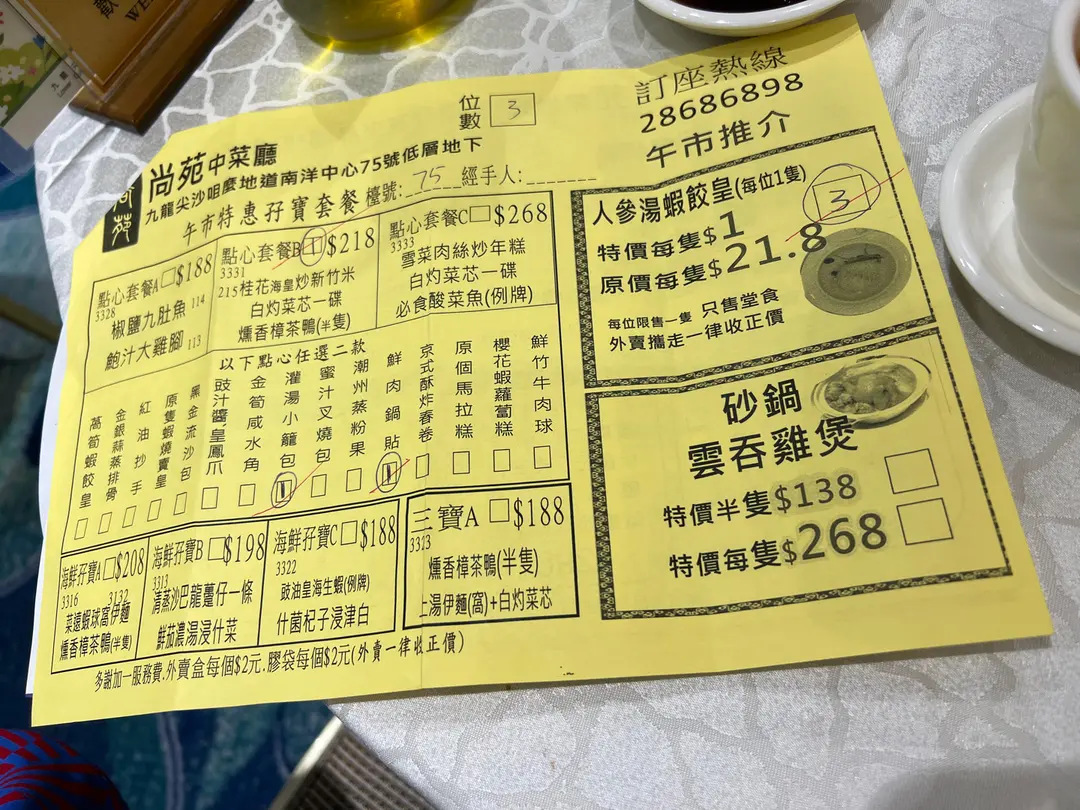 歡
WE
位數 3
訂座熱線
28686898
午市推介
尚苑
尚苑中菜廳
九龍尖沙咀麼地道南洋中心75號低層地下
午市特惠孖寶套餐 檯號: 75 經手人:
點心套餐A $188
3328
椒鹽九肚魚 114
鮑汁大雞腳 113
點心套餐B 1 $218
3331
215桂花海皇炒新竹米
白灼菜芯一碟
燻香樟茶鴨(半隻)
點心套餐C $268
3333
雪菜肉絲炒年糕
白灼菜芯一碟
必食酸菜魚(例牌)
以下點心任選二款
萵筍蝦餃皇
金銀蒜蒸排骨
紅油抄手
原隻蝦燒賣皇
黑金流沙包
豉汁醬皇鳳爪
金筍咸水角
灌湯小籠包 1
蜜汁叉燒包
潮州蒸粉果
鮮肉鍋貼 1
京式酥炸春卷
原個馬拉糕
櫻花蝦蘿蔔糕
鮮竹牛肉球
海鮮孖寶A $208
3316 3132
菜遠蝦球窩伊麵
燻香樟茶鴨(半隻)
海鮮孖寶B $198
3313
清蒸沙巴龍躉仔一條
鮮茄濃湯浸什菜
海鮮孖寶C $188
3322
豉油皇海生蝦(例牌)
什菌杞子浸津白
三寶A $188
3313
燻香樟茶鴨(半隻)
上湯伊麵(窩)+白灼菜芯
多謝加一服務費.外賣盒每個$2元.膠袋每個$2元(外賣一律收正價)
人參湯蝦餃皇(每位1隻) 3
特價每隻$1
原價每隻$21.8
每位限售一隻 只售堂食
外賣攜走一律收正價
砂鍋
雲吞雞煲
特價半隻$138
特價每隻$268